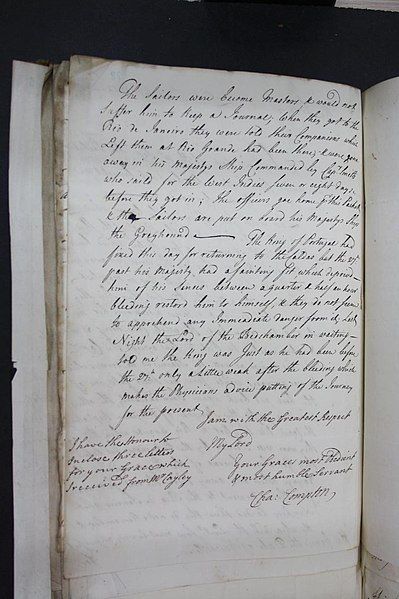 The Sailors were become Masters, & would not
suffer him to keep a Journal; when they got to the
Rio de Janeiro they were told their Companions which
Left them at Rio Grande had been there, & were gone
away in his Majestys Ship Commanded by Capt. Smith
who saild for the West Indies seven or eight days
before they got in; the officers are home by the Packet
& the Sailors are put on board his Majestys Ship
the Greyhound — The King of Portugal had
fixed this day for returning to the Caldas but the 27th
past his Majesty had a fainting fit which deprived
him of his Sences between a quarter & half an hour
bleeding restord him to himself, & they do not seem
to apprehend any Immediate danger from it, Last
Night the Lord of the Bedchamber in waiting
told me the King was Just as he had been before
the 27th. only a little weak after the bleeding which
makes the Physicians advice putting of the Journey
for the present
I am with the Greatest Respect
My Lord
Your Graces most Obedient
& most humble Servant
Cha: Compton
I have the Honour to
Enclose three letters
for your Grace which
I received from Mr Cayley